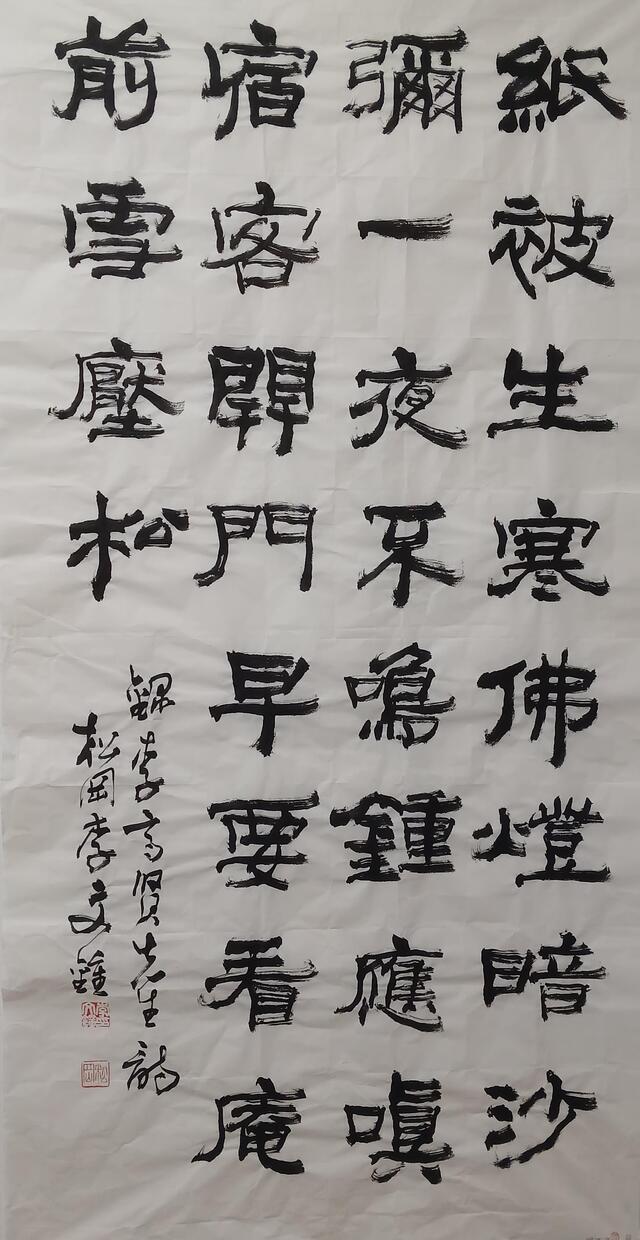 紙被生寒佛燈暗沙
彌一夜不鳴鍾應嗔
宿客開門早要看庵
前雪壓松
錄李齊賢先生詩
松岡李文鍾
松岡